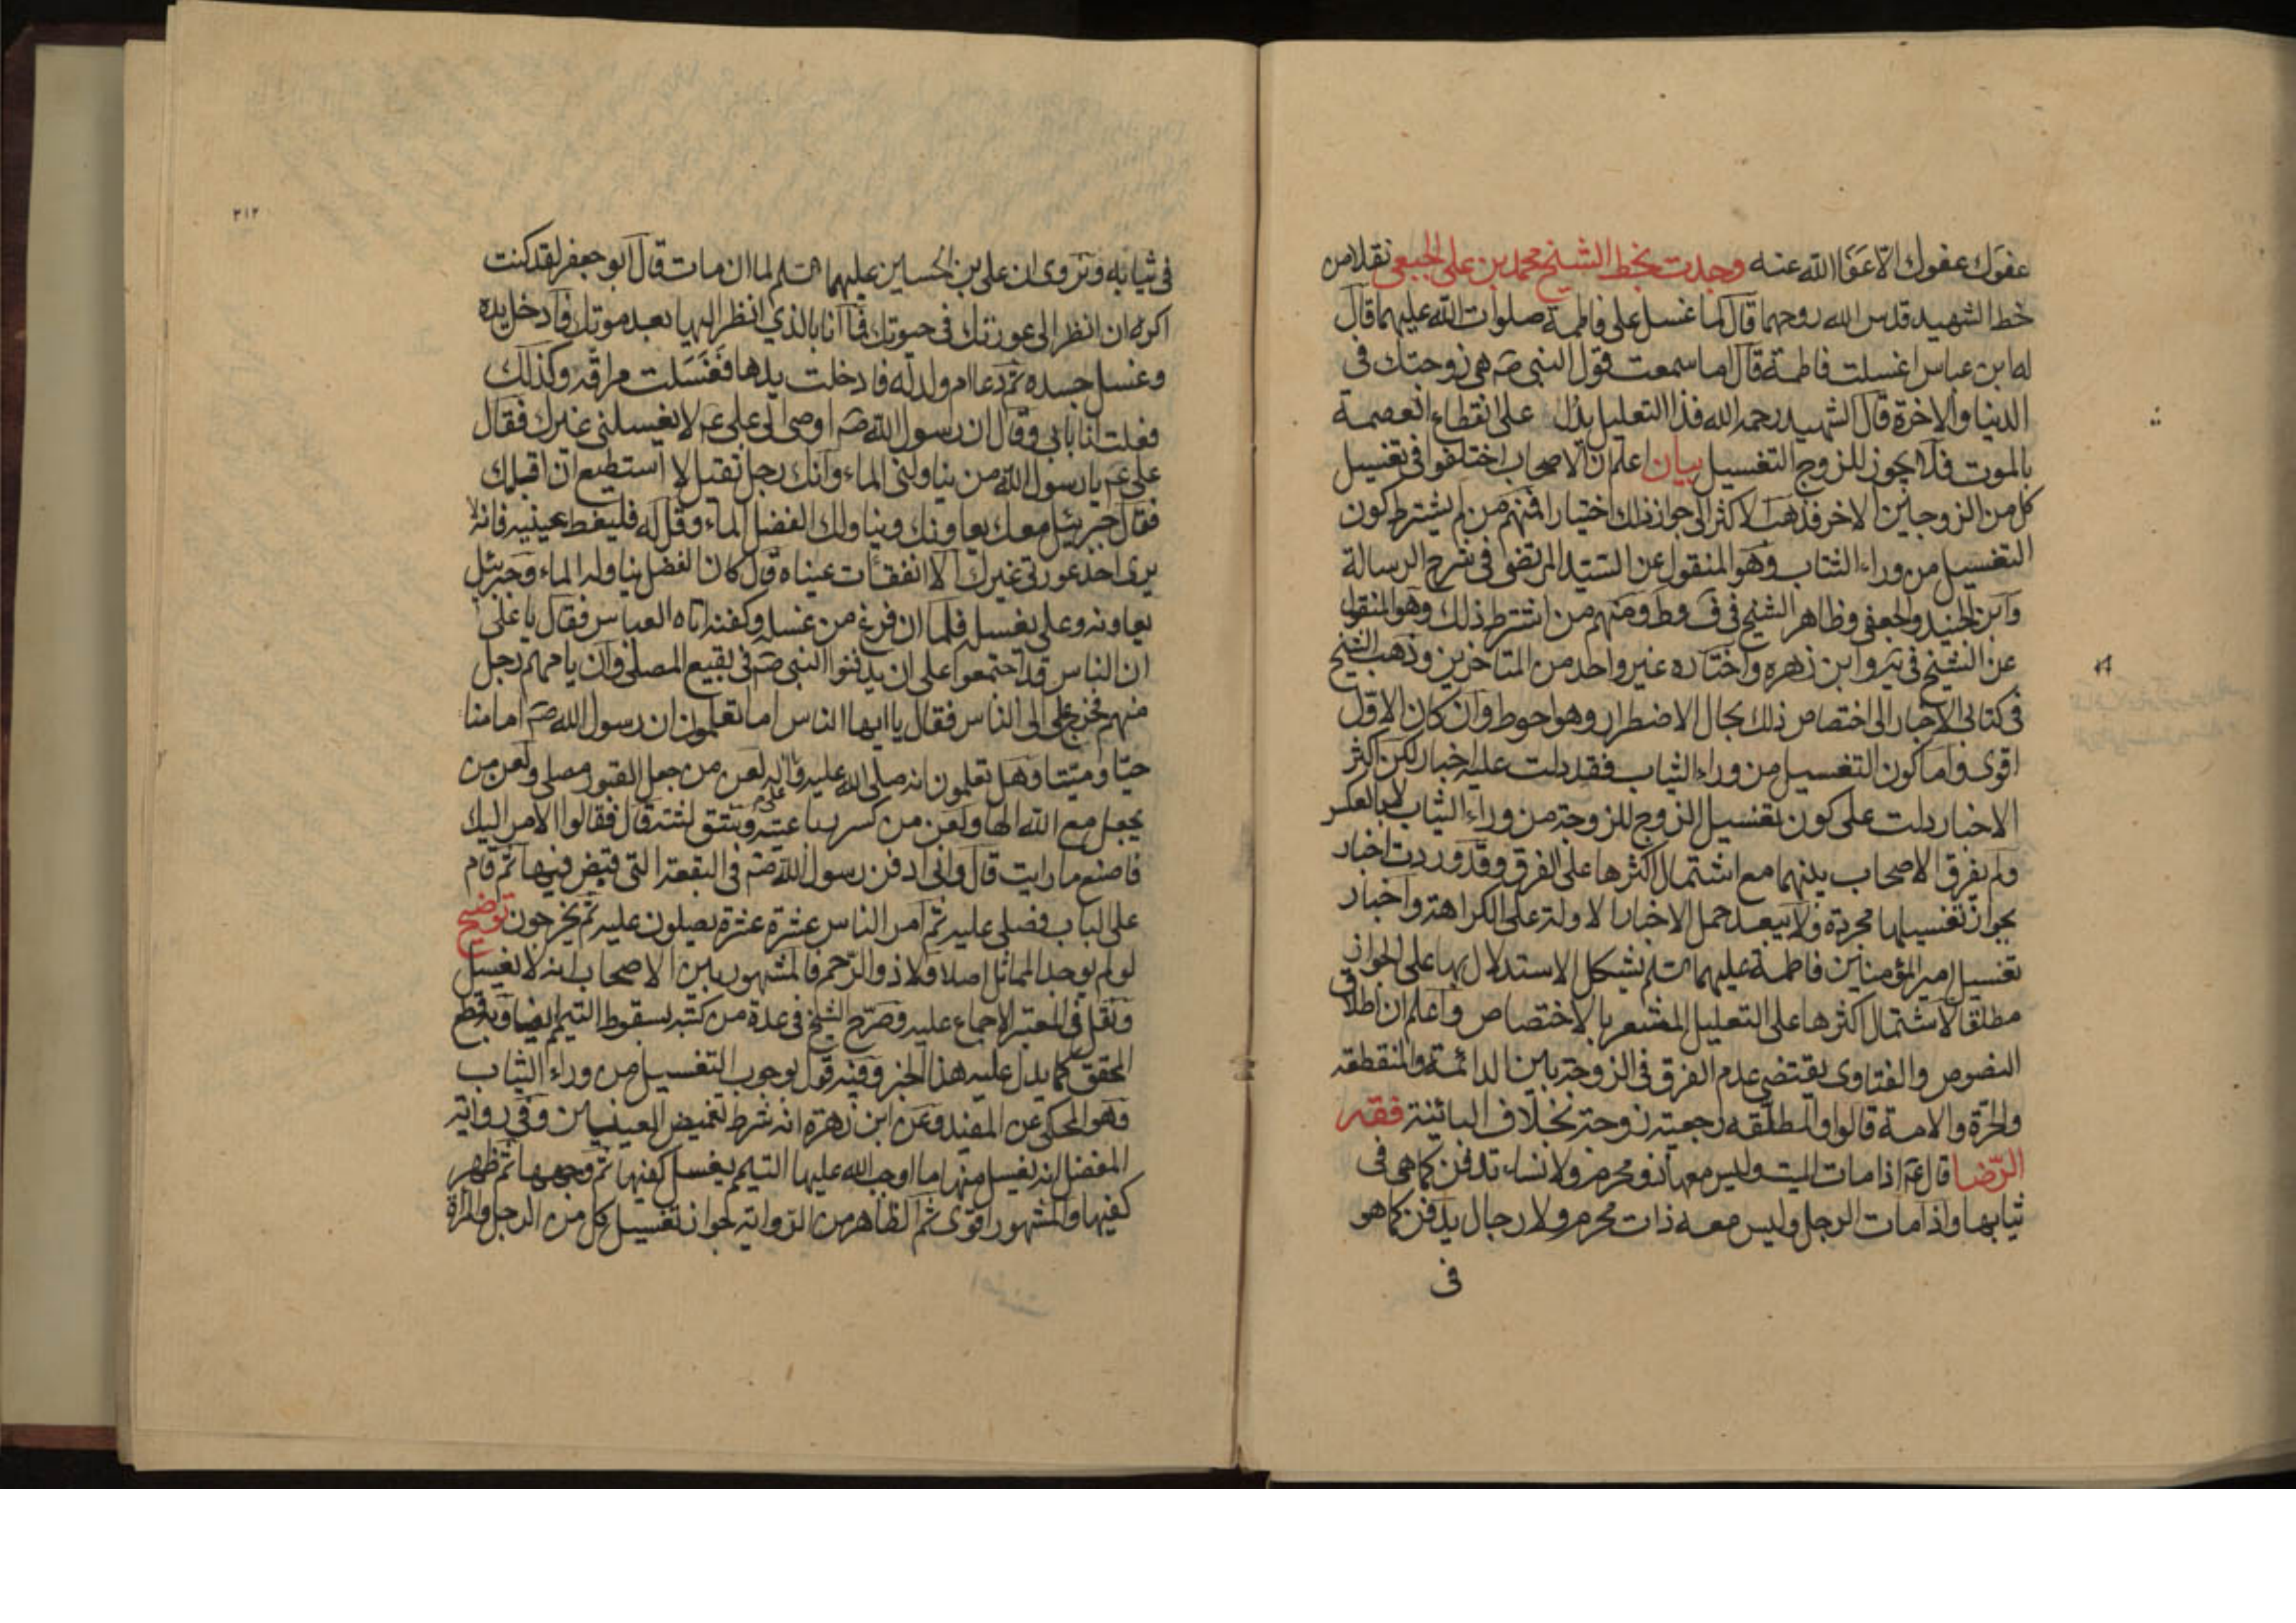 عفوك عفوك الا عفا الله عنه وجدت بخط الشيخ محمد بن علي الجبعي نقلا من
خط الشهيد قدس الله روحهما قال لما غسل علي فاطمة صلوات الله عليهما قال
له ابن عباس اغسلت فاطمة قال اما سمعت قول النبي صم هي زوجتك في
الدنيا والاخرة قال الشهيد رحمه الله فذا التعليل يدل على انقطاع العصمة
بالموت فلا يجوز للزوج التغسيل بيان اعلم ان الاصحاب اختلفوا في تغسيل
كل من الزوجين الاخر فذهب الاكثر الى جواز ذلك اختيارا فمنهم من لم يشترط كون
التغسيل من وراء الثياب وهو المنقول عن السيد المرتضى في شرح الرسالة
وابن الجنيد والجعفي وظاهر الشيخ في ف وط ومنهم من اشترط ذلك وهو المنقول
عن الشيخ في يه وابن زهره واختاره غير واحد من المتاخرين وذهب الشيخ
في كتابي الاخبار الى اختصاص ذلك بحال الاضطرار وهو احوط وان كان الاول
اقوى واما كون التغسيل من وراء الثياب فقد دلت عليه اخبار لكن اكثر
الاخبار دلت على كون تغسيل الزوج للزوجة من وراء الثياب لا بالعكس
ولم يفرق الاصحاب بينهما مع اشتمال اكثرها على الفرق وقد وردت اخبار
بجواز تغسيلها مجردة ولا يبعد حمل الاخبار الاولة على الكراهة واخبار
تغسيل امير المؤمنين فاطمة عليهما السلم يشكل الاستدلال بها على الجواز
مطلقا لاشتمال اكثرها على التعليل المشعر بالاختصاص واعلم ان اطلاق
النصوص والفتاوى يقتضي عدم الفرق في الزوجة بين الدائمة والمنقطعه
والحرة والامة قالوا والمطلقه رجعية زوجة بخلاف البائنة فقه
الرضا قال عم اذا مات الميت وليس معها ذو محرم ولا نساء تدفن كما هي في
ثيابها واذا مات الرجل وليس معه ذات محرم ولا رجال يدفن كما هو
في
٣١٢
في ثيابه ونروي ان علي بن الحسين عليهما السلم لما ان مات قال ابو جعفر لقد كنت
اكره ان انظر الى عورتك في حيوتك فما انا بالذي انظر اليها بعد موتك فادخل يده
وغسل جسده ثم دعا ام ولد له فادخلت يدها فغسلت مراقه وكذلك
فعلت انا بابي وقال ان رسول الله صم اوصى الى علي عم لا يغسلني غيرك فقال
علي عم يا رسول الله من يناولني الماء وانك رجل ثقيل لا استطيع ان اقبلك
فقال جبرئيل معك يعاونك ويناولك الفضل الماء وقل له فليغط عينيه فانه لا
يرى احد عورتي غيرك الا انفقات عيناه قال كان الفضل يناوله الماء وجبرئيل
يعاونه وعلي يغسله فلما ان فرغ من غسله وكفنه اتاه العباس فقال يا علي
ان الناس قد اجتمعوا على ان يدفنوا النبي صم في بقيع المصلى وان يامهم رجل
منهم فخرج علي الى الناس فقال يا ايها الناس اما تعلمون ان رسول الله صم امامنا
حيا وميتا وهل تعلمون انه صلى الله عليه واله لعن من جعل القبور مصلى ولعن من
يجعل مع الله الها ولعن من كسر رباعيته وشق لثته قال فقالوا الامر اليك
فاصنع ما رايت قال واني ادفن رسول الله صم في البقعة التي قبض فيها ثم قام
على الباب فصلى عليه ثم امر الناس عشرة عشرة يصلون عليه ثم يخرجون توضيح
لو لم يوجد المماثل اصلا ولا ذو الرحم فالمشهور بين الاصحاب انه لا يغسل
ونقل في المعتبر الاجماع عليه وصرح الشيخ في عدة من كتبه بسقوط التيمم ايضا وبه قطع
المحقق كما يدل عليه هذا الخبر وفيه قول بوجوب التغسيل من وراء الثياب
وهو المحكي عن المفيد وعن ابن زهرة انه شرط تغميض العينين وفي رواية
المفضل انه يغسل منها ما اوجب الله عليها التيمم يغسل كفيها ثم وجهها ثم ظهر
كفيها والمشهور اقوى ثم الظاهر من الرواية جواز تغسيل كل من الرجل والمراة